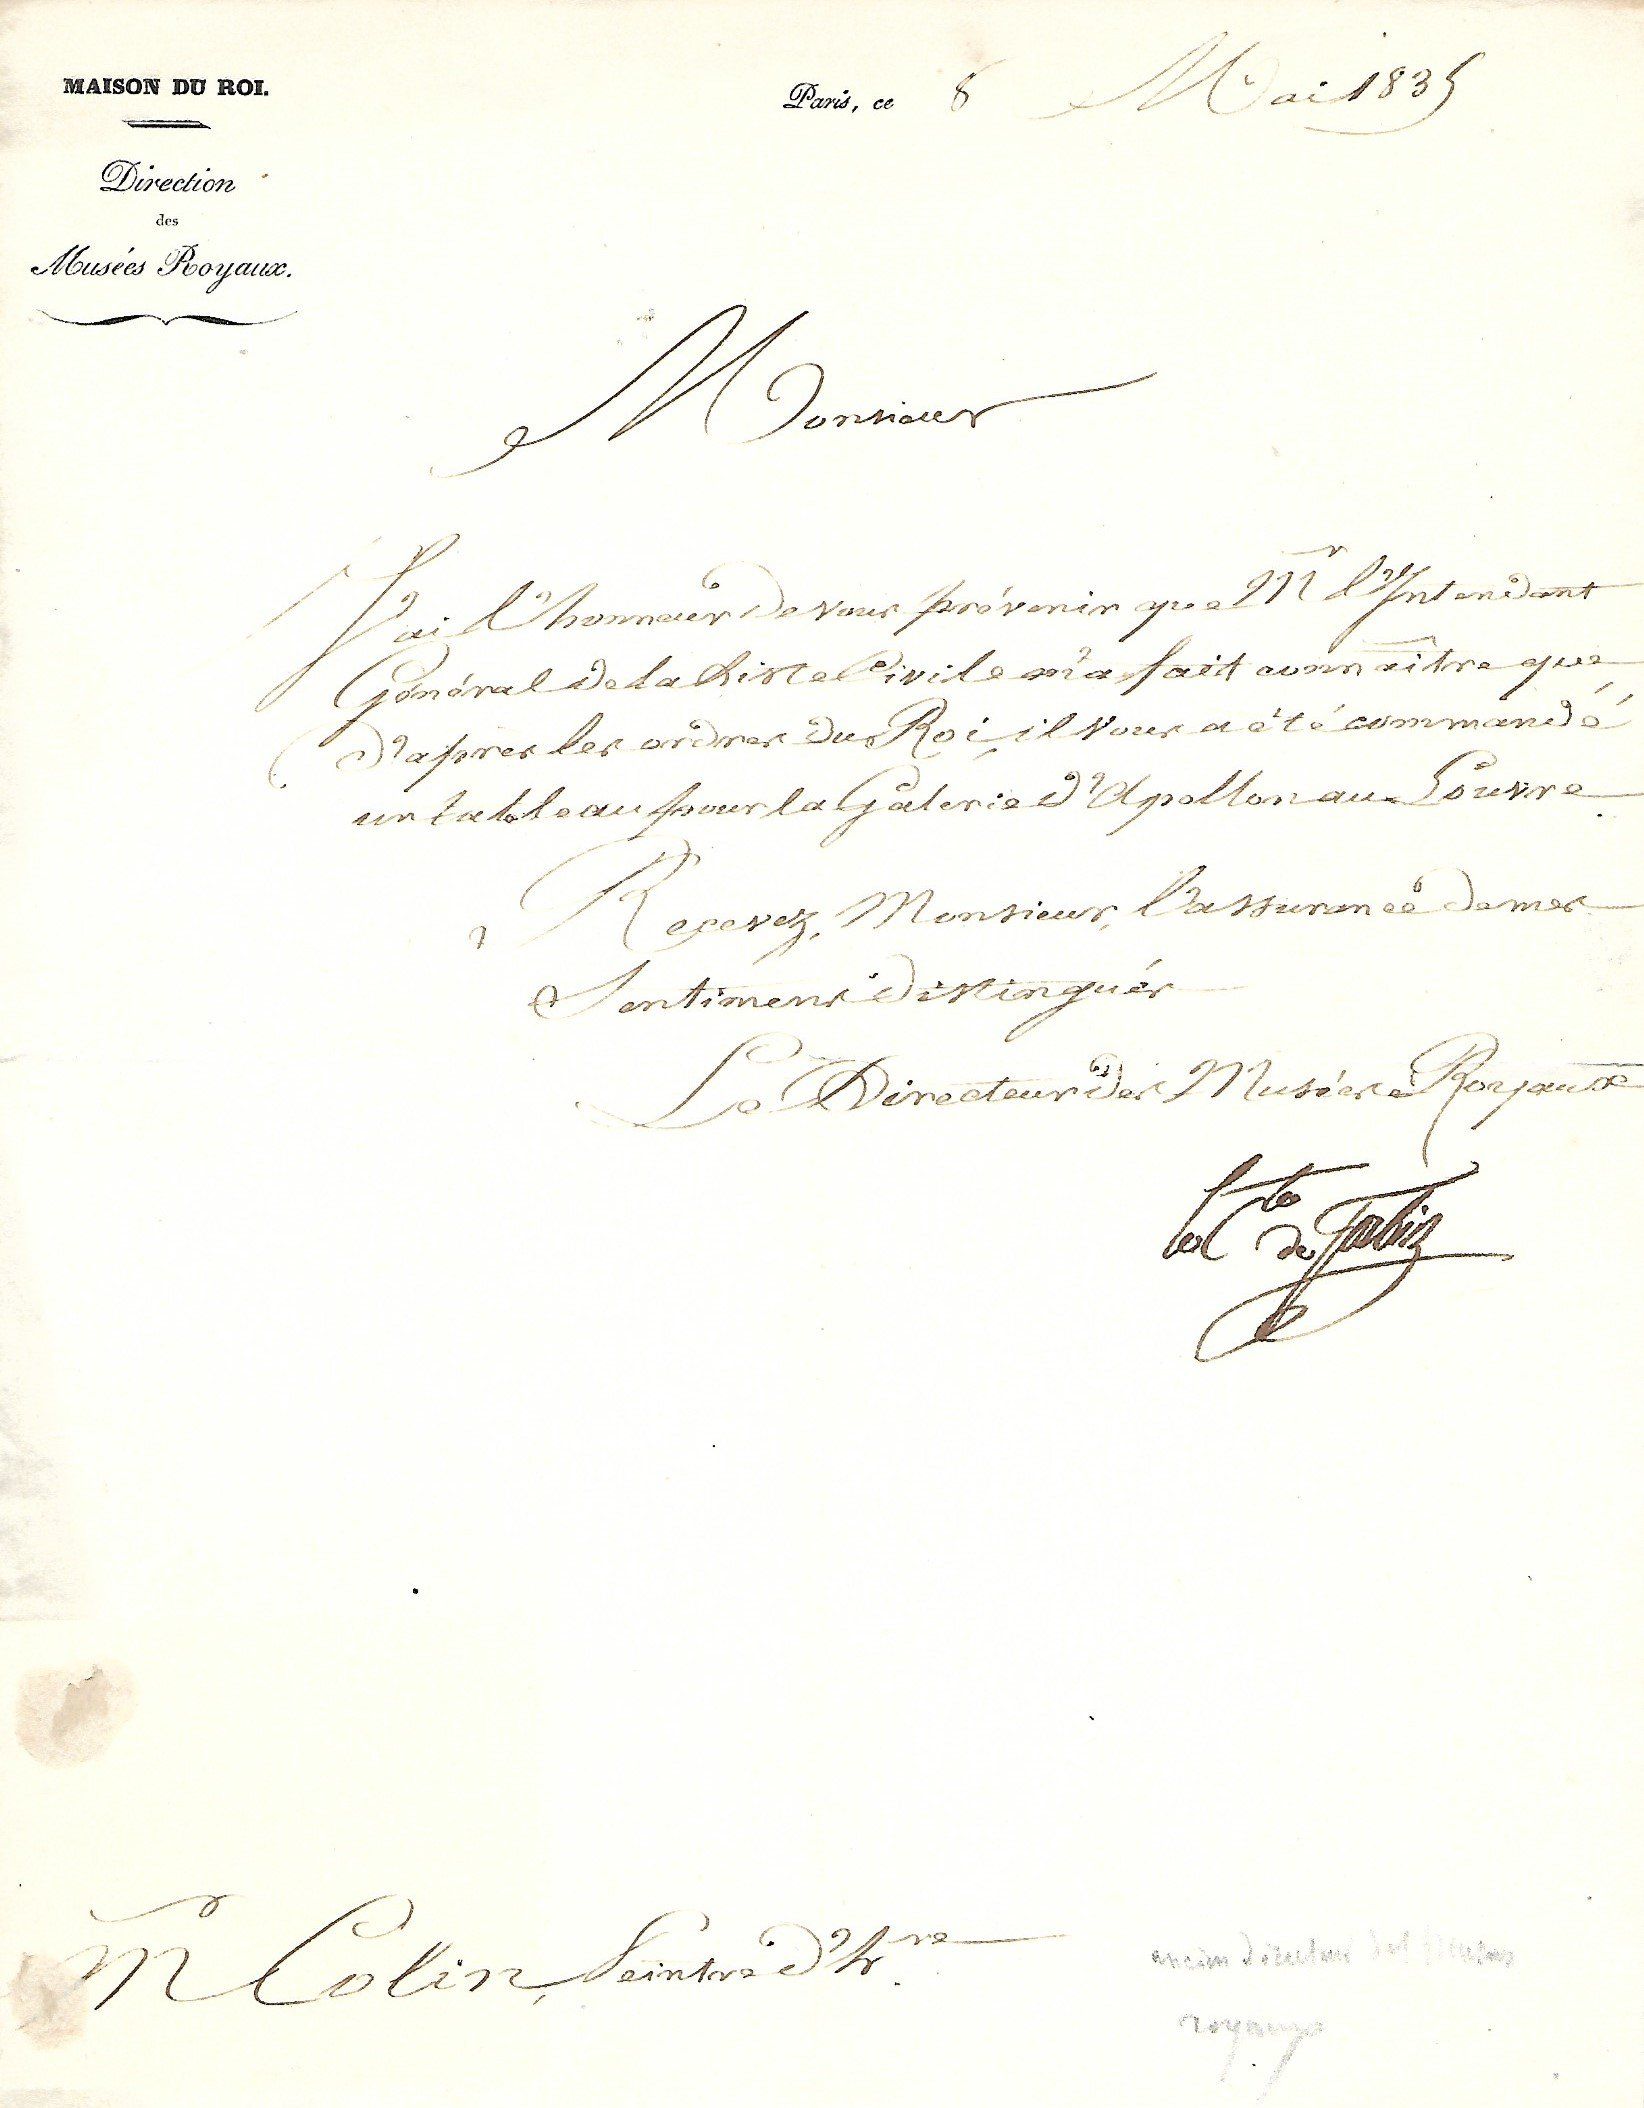 MAISON DU ROI.
Direction
des
Musées Royaux.
Paris, ce 8 Mai 1835
Monsieur
J'ai l'honneur de vous prévenir que Mr l'Intendant
Général de la Liste Civile m'a fait connaître que
d'apres les ordres du Roi, il vous a été commandé
un tableau pour la Galerie d'Apollon au Louvre.
Recevez, Monsieur, l'assurance de mes
Sentimens distingués
Le Directeur des Musées Royaux
le Cte de Forbin
Mr Colin, Peintre d'hre.
ancien directeur des Musées
royaux